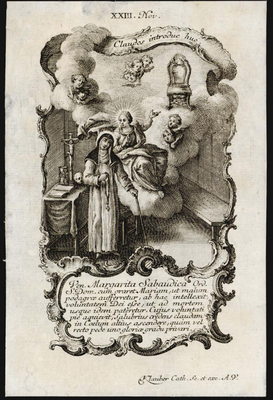 XXIII. Nov.
Claudos introduc huc
Ven. Margarita Sabaudica Ord.
S. P. Dom. cum oraret Mariam, ut malum
podagræ auferretur, ab hac intellexit
voluntatem Dei esse, ut ad mortem
usque idem pateretur. Cujus voluntati
se aquievit, salubrius credens claudam
in Cœlum altius ascendere, quam vel
recto pede uno gloriæ gradu privari.
Tauber Cath. Sc. et exc. A. V.